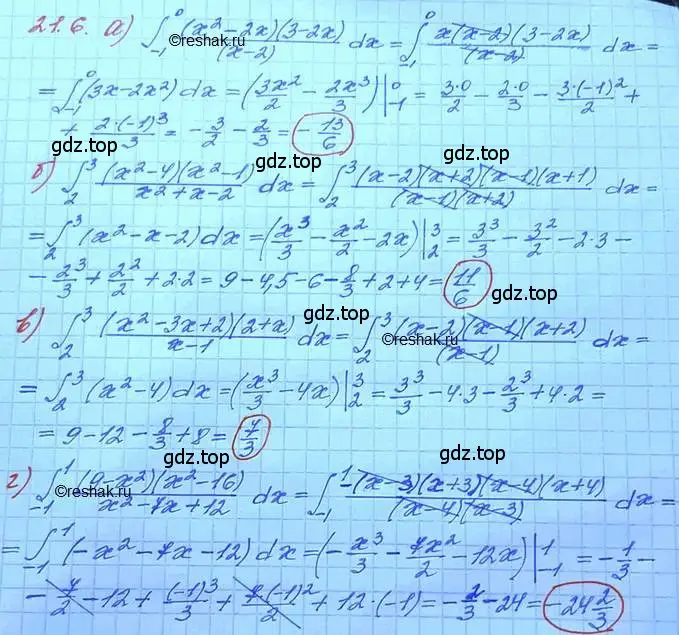 21.6. а) ∫₋₁⁰ (x²-2x)(3-2x)/(x-2) dx = ∫₋₁⁰ x(x-2)(3-2x)/(x-2) dx =
©reshak.ru
= ∫₋₁⁰ (3x-2x²) dx = (3x²/2 - 2x³/3)|₋₁⁰ = 3·0/2 - 2·0/3 - 3·(-1)²/2 +
+ 2·(-1)³/3 = -3/2 - 2/3 = -13/6
gdz.top gdz.top gdz.top
б) ∫₂³ (x²-4)(x²-1)/(x²+x-2) dx = ∫₂³ (x-2)(x+2)(x-1)(x+1)/((x-1)(x+2)) dx =
= ∫₂³ (x²-x-2) dx = (x³/3 - x²/2 - 2x)|₂³ = 3³/3 - 3²/2 - 2·3 -
- 2³/3 + 2²/2 + 2·2 = 9 - 4,5 - 6 - 8/3 + 2 + 4 = 11/6
gdz.top gdz.top gdz.top
в) ∫₂³ (x²-3x+2)(2+x)/(x-1) dx = ∫₂³ (x-2)(x-1)(x+2)/(x-1) dx =
©reshak.ru ©reshak.ru
= ∫₂³ (x²-4) dx = (x³/3 - 4x)|₂³ = 3³/3 - 4·3 - 2³/3 + 4·2 =
= 9 - 12 - 8/3 + 8 = 7/3
gdz.top gdz.top gdz.top
г) ∫₋₁¹ (9-x²)(x²-16)/(x²-7x+12) dx = ∫₋₁¹ -(x-3)(x+3)(x-4)(x+4)/((x-4)(x-3)) dx =
©reshak.ru
= ∫₋₁¹ (-x²-7x-12) dx = (-x³/3 - 7x²/2 - 12x)|₋₁¹ = -1/3 -
- 7/2 - 12 + (-1)³/3 + 7·(-1)²/2 + 12·(-1) = -2/3 - 24 = -24 2/3
gdz.top gdz.top gdz.top